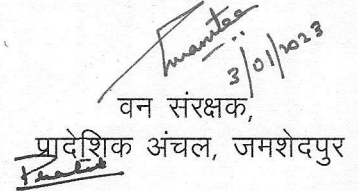 3/01/2023
वन संरक्षक,
प्रादेशिक अंचल, जमशेदपुर